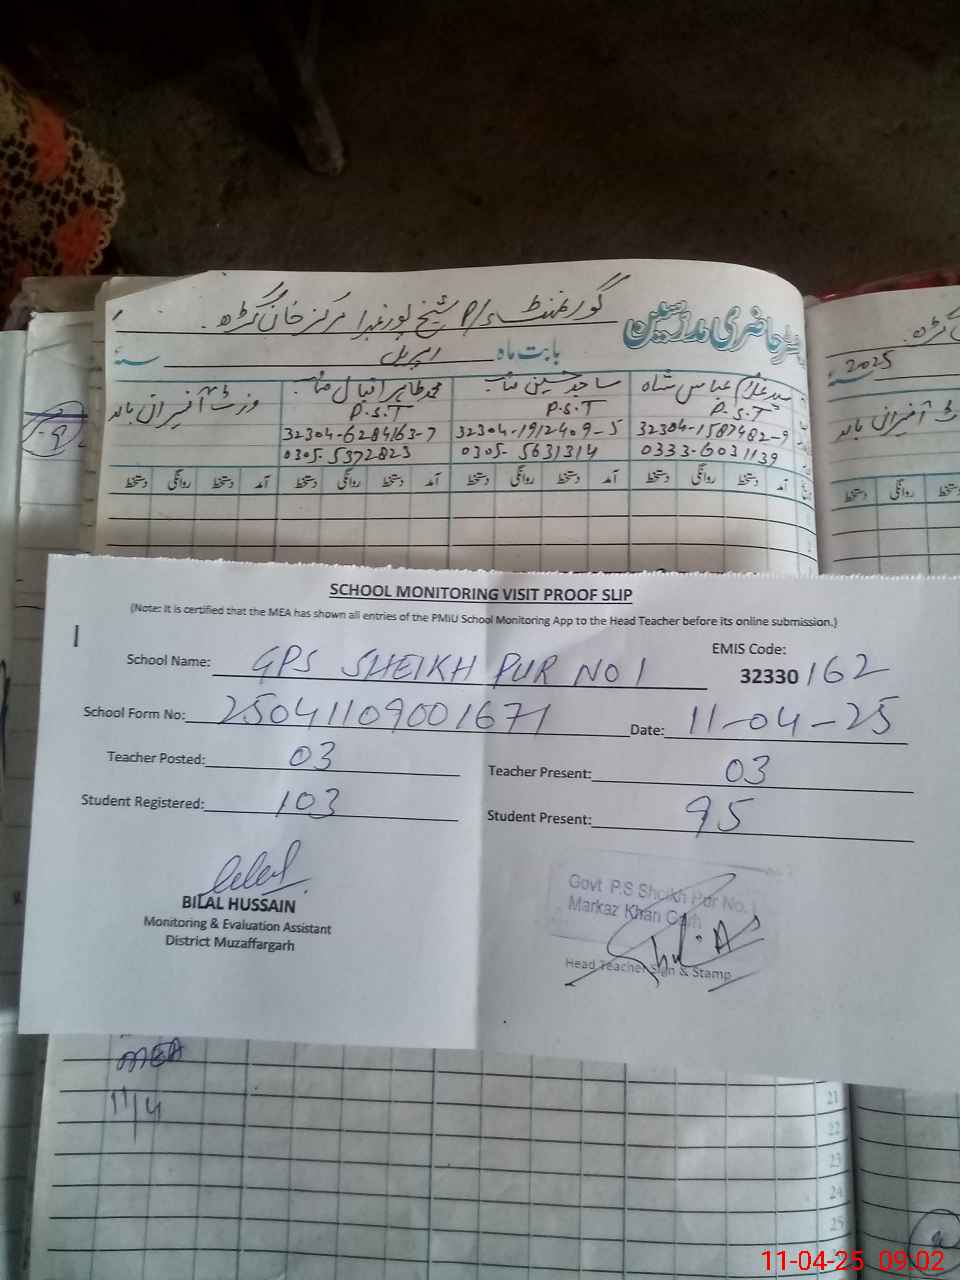 گورنمنٹ P/S شیخ پور نمبر 1 مرکز خان گڑھ
حاضری مدرسین
بابت ماہ اپریل سنہ
2025
سید غلام عباس شاہ ساجد حسین صاحب محمد طاہر اقبال صاحب وزٹ آفیسران بالا
P.S.T P.S.T P.S.T
32304-1587482-9 32304-1912409-5 32304-6284163-7
0333-6031139 0305-5631314 0305-5372823
آمد دستخط روانگی دستخط آمد دستخط روانگی دستخط آمد دستخط روانگی دستخط آمد دستخط روانگی دستخط
SCHOOL MONITORING VISIT PROOF SLIP
(Note: It is certified that the MEA has shown all entries of the PMIU School Monitoring App to the Head Teacher before its online submission.)
School Name: GPS SHEIKH PUR NO 1 EMIS Code: 32330162
School Form No: 25041109001671 Date: 11-04-25
Teacher Posted: 03 Teacher Present: 03
Student Registered: 103 Student Present: 95
BILAL HUSSAIN
Monitoring & Evaluation Assistant
District Muzaffargarh
Govt P.S Sheikh Pur No. 1
Markaz Khan Garh
Head Teacher Sign & Stamp
MEA
11/4
21
22
23
24
25
11-04-25 09.02